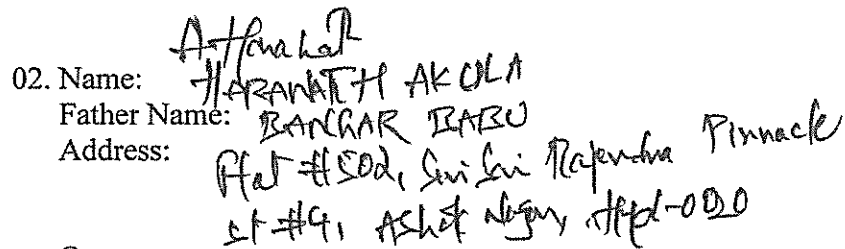 02. Name: HARANATH AKULA
Father Name: BANGAR BABU
Address: Flat #502, Sri Sri Rajendra Pinnacle
st #9, Ashok Nagar, Hyd-020